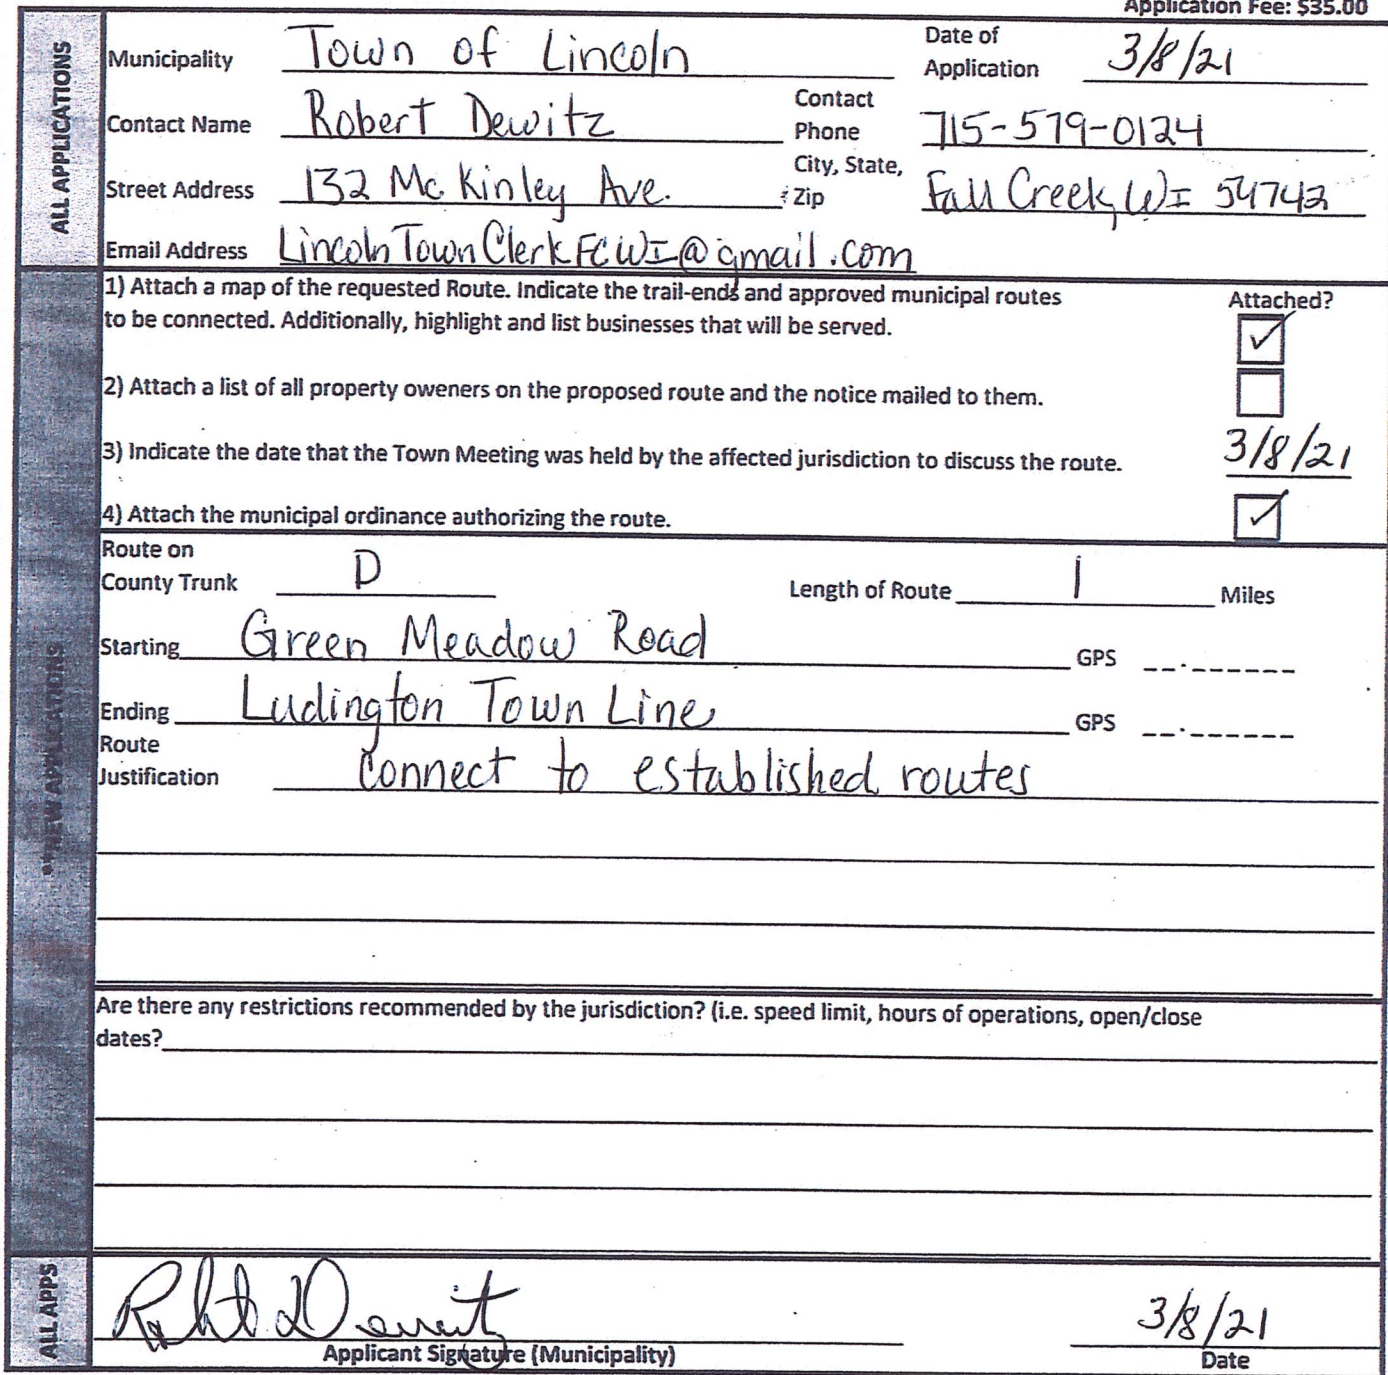 Application Fee: $35.00
ALL APPLICATIONS
Municipality Town of Lincoln Date of Application 3/8/21
Contact Name Robert Dewitz Contact Phone 715-579-0124
Street Address 132 McKinley Ave. City, State, Zip Fall Creek, WI 54742
Email Address LincolnTownClerkFCWI@gmail.com
**NEW APPLICATIONS
1) Attach a map of the requested Route. Indicate the trail-ends and approved municipal routes Attached?
to be connected. Additionally, highlight and list businesses that will be served. ✓
2) Attach a list of all property oweners on the proposed route and the notice mailed to them.
3) Indicate the date that the Town Meeting was held by the affected jurisdiction to discuss the route. 3/8/21
4) Attach the municipal ordinance authorizing the route. ✓
Route on
County Trunk D Length of Route 1 Miles
Starting Green Meadow Road GPS __.______
Ending Ludington Town Line GPS __.______
Route
Justification Connect to established routes
Are there any restrictions recommended by the jurisdiction? (i.e. speed limit, hours of operations, open/close
dates?
ALL APPS
Robert Dewitz 3/8/21
Applicant Signature (Municipality) Date